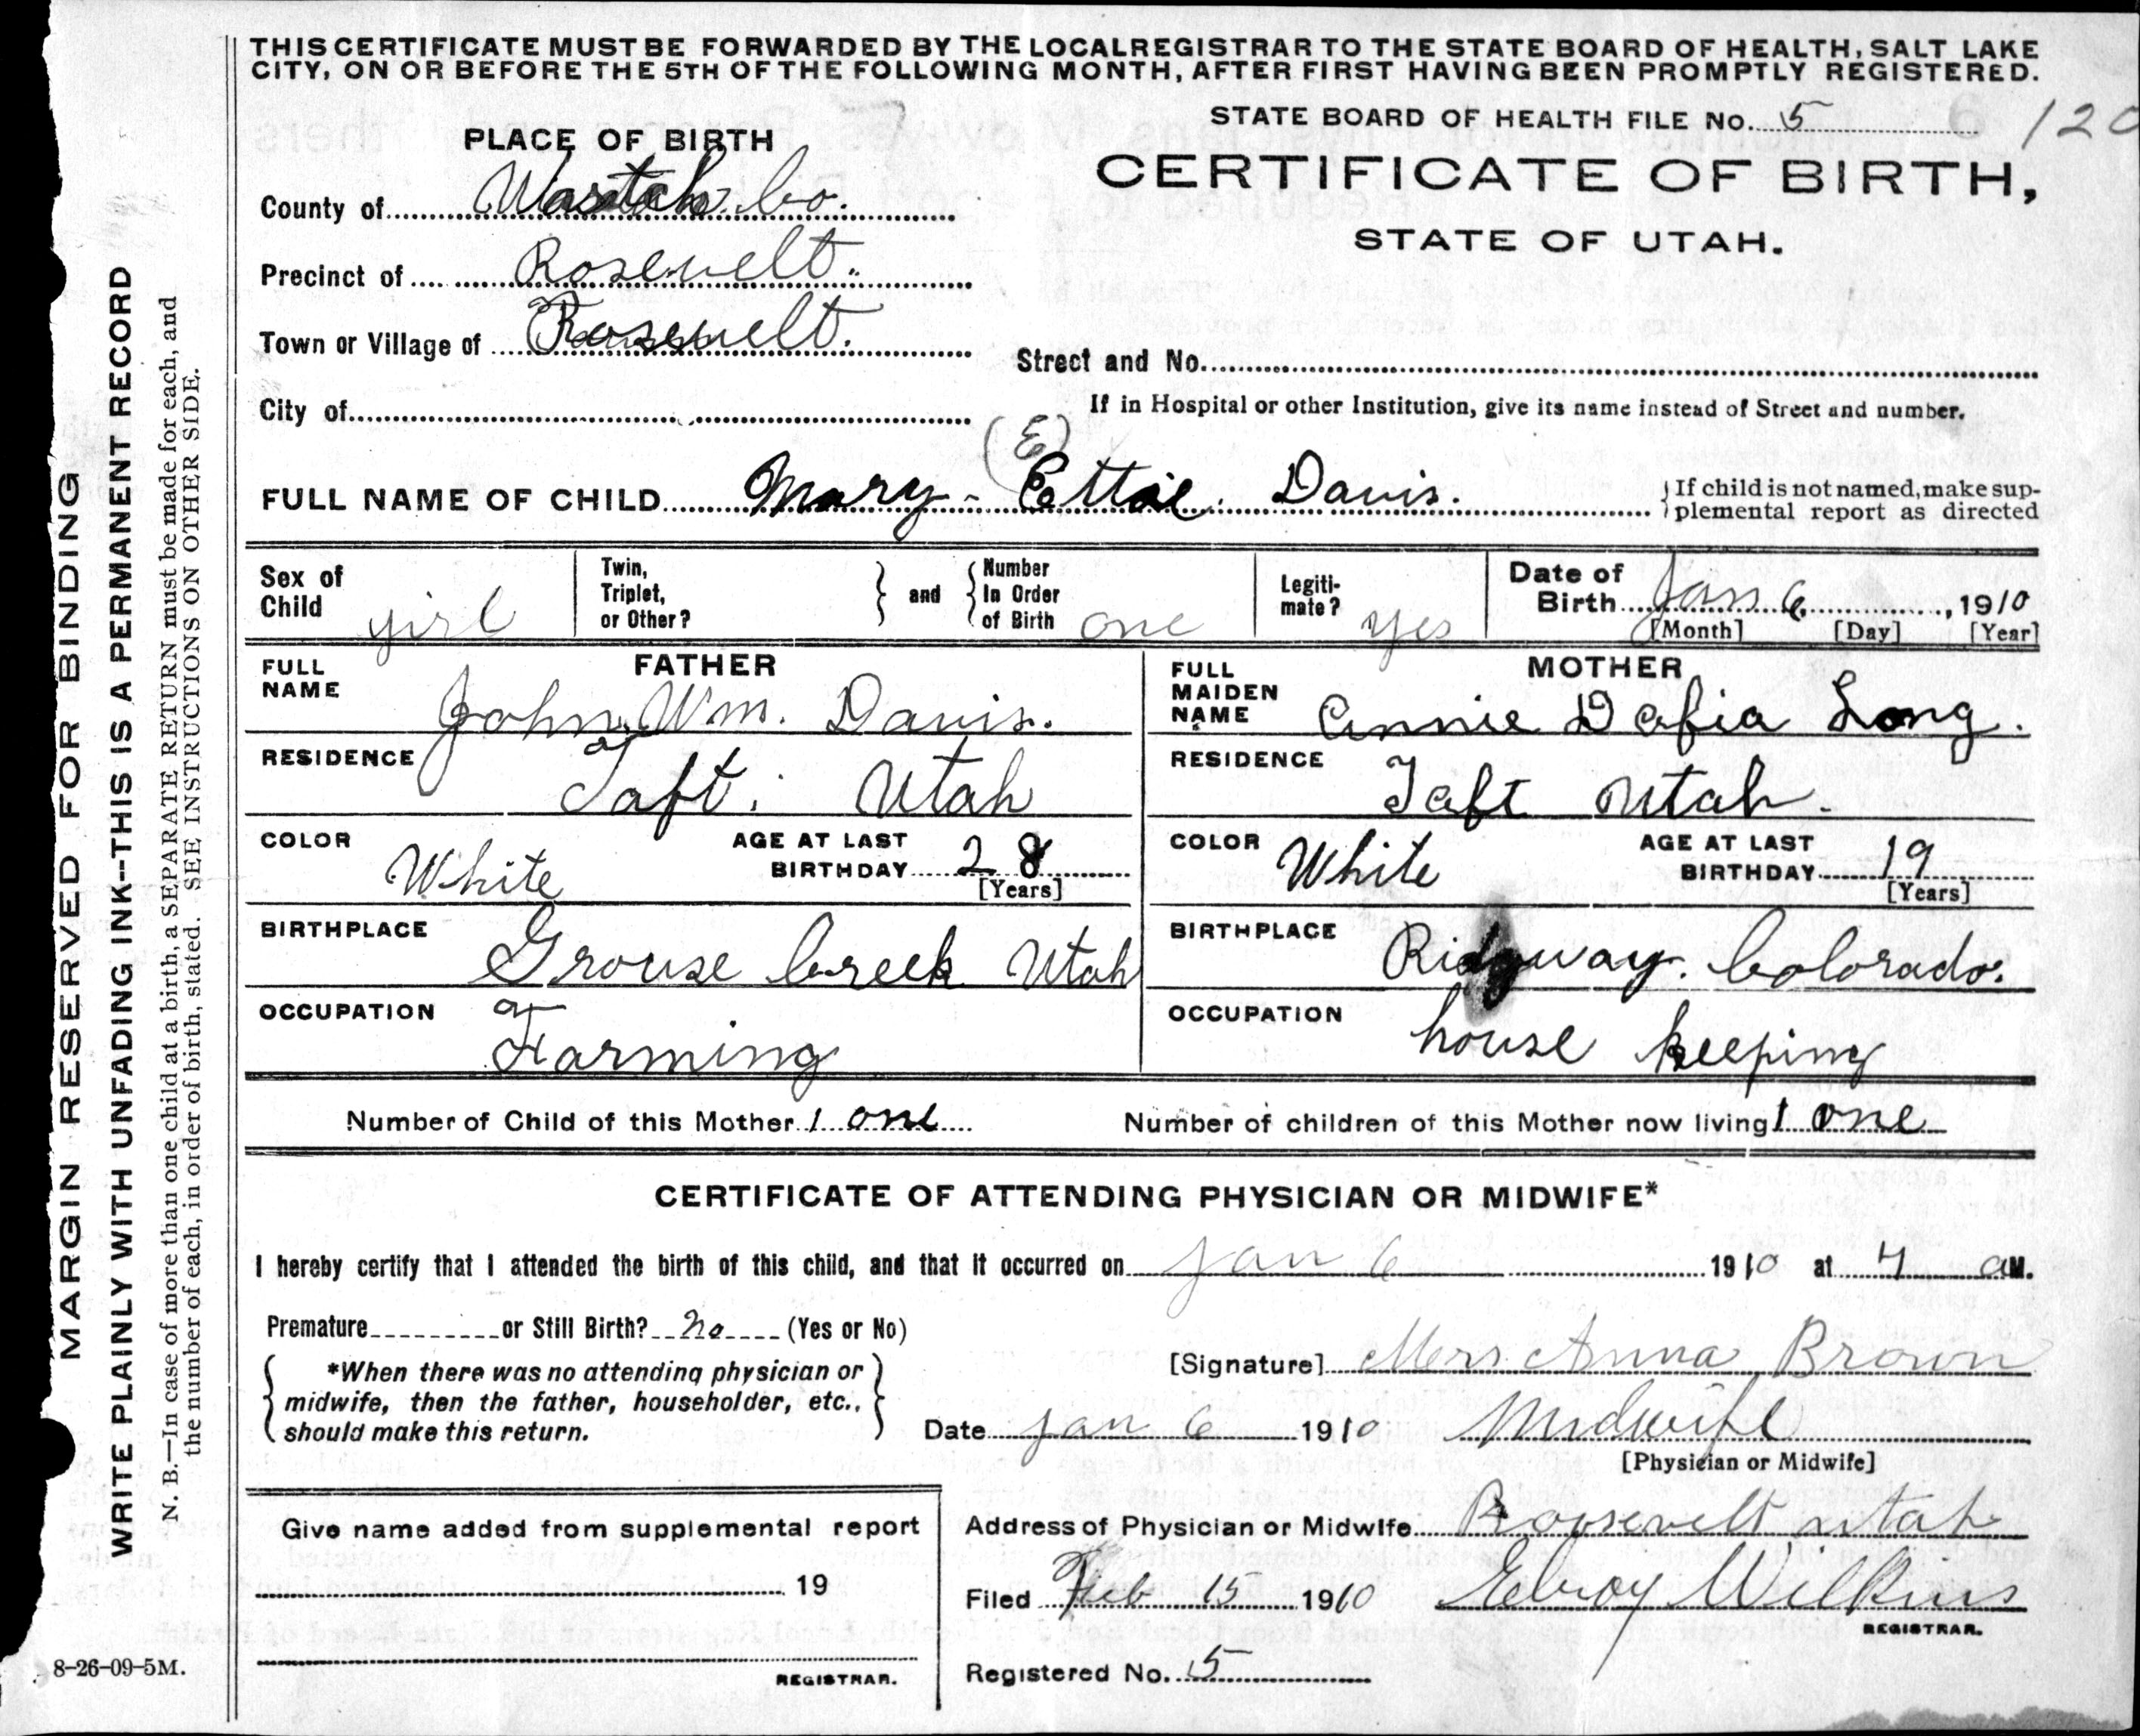 THIS CERTIFICATE MUST BE FORWARDED BY THE LOCAL REGISTRAR TO THE STATE BOARD OF HEALTH, SALT LAKE
CITY, ON OR BEFORE THE 5TH OF THE FOLLOWING MONTH, AFTER FIRST HAVING BEEN PROMPTLY REGISTERED.
STATE BOARD OF HEALTH FILE No. 5 120
PLACE OF BIRTH
CERTIFICATE OF BIRTH,
STATE OF UTAH.
County of Wasatch Co.
Precinct of Rosevelt.
Town or Village of Rosevelt.
Street and No.
City of
If in Hospital or other Institution, give its name instead of Street and number.
(E)
FULL NAME OF CHILD Mary Ettie Davis.
If child is not named, make sup-
plemental report as directed
Sex of Child girl
Twin, Triplet, or Other? and Number In Order of Birth one
Legiti-mate? yes
Date of Birth Jan 6, 1910
[Month] [Day] [Year]
FATHER
FULL NAME John Wm. Davis.
RESIDENCE Taft. Utah
COLOR White AGE AT LAST BIRTHDAY 28 [Years]
BIRTHPLACE Grouse Creek Utah
OCCUPATION Farming
MOTHER
FULL MAIDEN NAME Annie Dafia Long.
RESIDENCE Taft Utah.
COLOR White AGE AT LAST BIRTHDAY 19 [Years]
BIRTHPLACE Ridgway. Colorado.
OCCUPATION house keeping
Number of Child of this Mother 1 one Number of children of this Mother now living 1 one
CERTIFICATE OF ATTENDING PHYSICIAN OR MIDWIFE*
I hereby certify that I attended the birth of this child, and that it occurred on Jan 6 1910 at 4 aM.
Premature or Still Birth? No (Yes or No)
*When there was no attending physician or
midwife, then the father, householder, etc.,
should make this return.
[Signature] Mrs Anna Brown
Date Jan 6 1910 Midwife
[Physician or Midwife]
Give name added from supplemental report
19
REGISTRAR.
Address of Physician or Midwife Roosevelt Utah
Filed Feb 15 1910 Elroy Wilkins
REGISTRAR.
Registered No. 5
MARGIN RESERVED FOR BINDING
WRITE PLAINLY WITH UNFADING INK--THIS IS A PERMANENT RECORD
N. B.—In case of more than one child at a birth, a SEPARATE RETURN must be made for each, and
the number of each, in order of birth, stated. SEE INSTRUCTIONS ON OTHER SIDE.
8-26-09-5M.